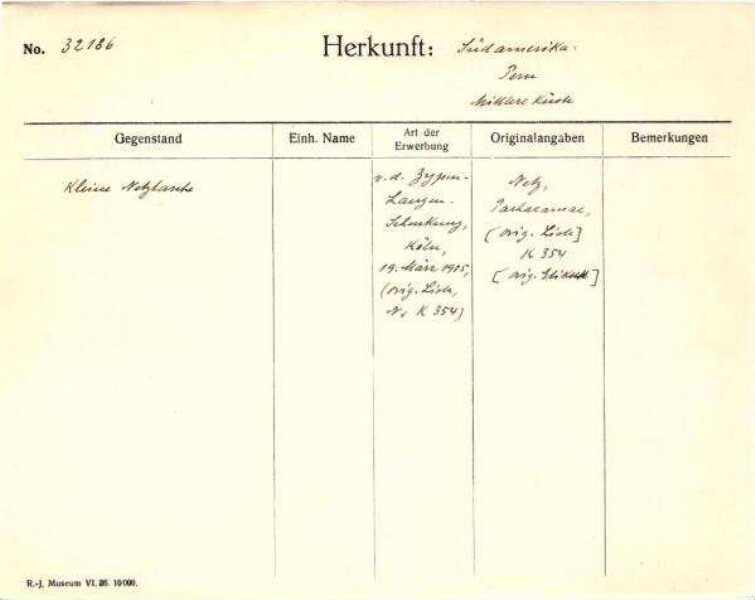 No. 32186
Herkunft: Südamerika.
Peru
Mittlere Küste
Gegenstand
Einh. Name
Art der
Erwerbung
Originalangaben
Bemerkungen
Kleine Netztasche
v. d. Zypen-
Langen-
Schenkung,
Köln,
19. März 1915,
(orig. Liste,
N. K 354)
Netz,
Pachacamac,
(orig. Liste]
K 354
[orig. Etikett]
R.-J. Museum VI. 26. 10000.